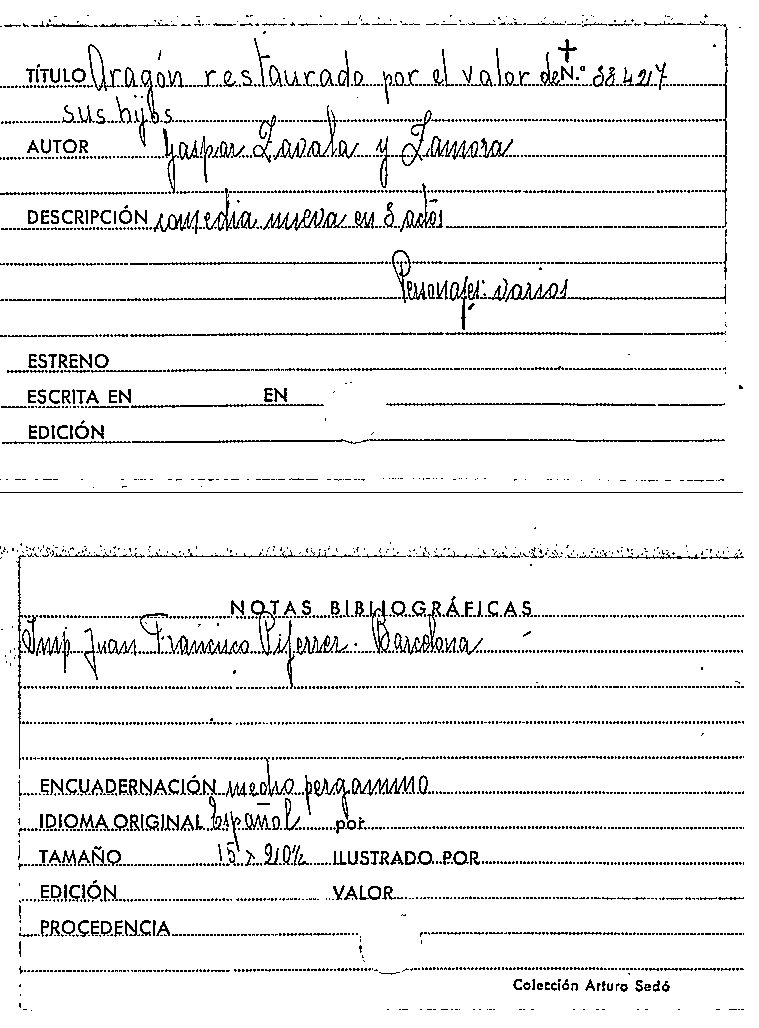 TÍTULO Aragón restaurado por el valor de N.º 38427
sus hijos
AUTOR Gaspar Zavala y Zamora
DESCRIPCIÓN comedia nueva en 3 actos
Personajes: varios
ESTRENO
ESCRITA EN EN
EDICIÓN
NOTAS BIBLIOGRÁFICAS
Imp Juan Francisco Piferrer. Barcelona
ENCUADERNACIÓN medio pergamino
IDIOMA ORIGINAL Español por
TAMAÑO 15 x ILUSTRADO POR
EDICIÓN VALOR
PROCEDENCIA
Colección Arturo Sedó